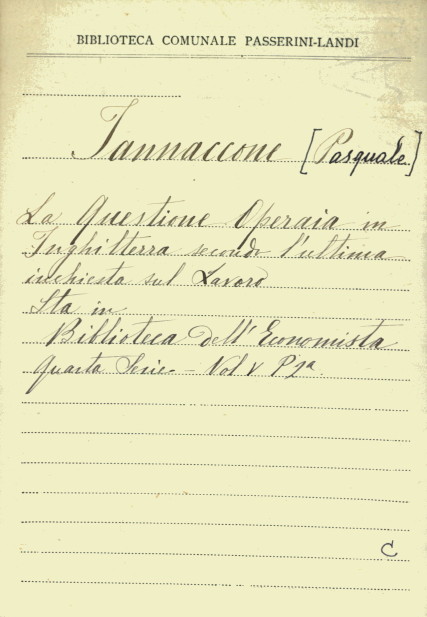 BIBLIOTECA COMUNALE PASSERINI-LANDI
Jannaccone [Pasquale]
La Questione Operaia in
Inghilterra secondo l'ultima
inchiesta sul Lavoro
Sta in
Biblioteca dell'Economista
Quarta Serie - Vol V P 2ª
C